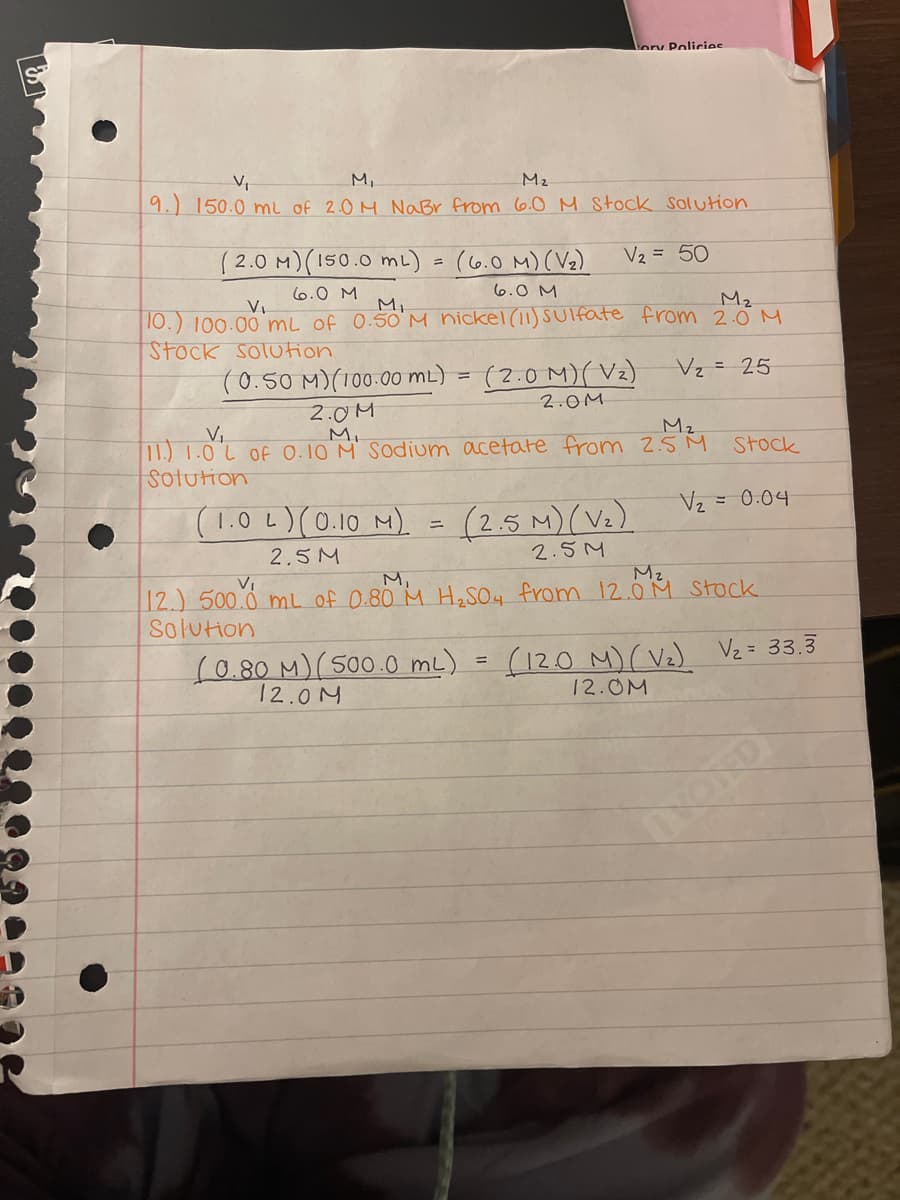 ory Policies
ST
V₁ M₁ M₂
9.) 150.0 mL of 2.0 M NaBr from 6.0 M Stock solution
(2.0 M)(150.0 mL) = (6.0 M)(V₂) V₂ = 50
6.0 M 6.0 M
V₁ M₁ M₂
10.) 100.00 mL of 0.50 M nickel(11) sulfate from 2.0 M
Stock solution
(0.50 M)(100.00 mL) = (2.0 M)(V₂) V₂ = 25
2.0M 2.0M
V₁ M₁ M₂
11.) 1.0 L of 0.10 M Sodium acetate from 2.5 M Stock
Solution
(1.0 L)(0.10 M) = (2.5 M)(V₂) V₂ = 0.04
2.5M 2.5M
V₁ M₁ M₂
12.) 500.0 mL of 0.80 M H₂SO₄ from 12.0M Stock
Solution
(0.80 M)(500.0 mL) = (12.0 M)(V₂) V₂ = 33.3̅
12.0M 12.0M
I VOTED